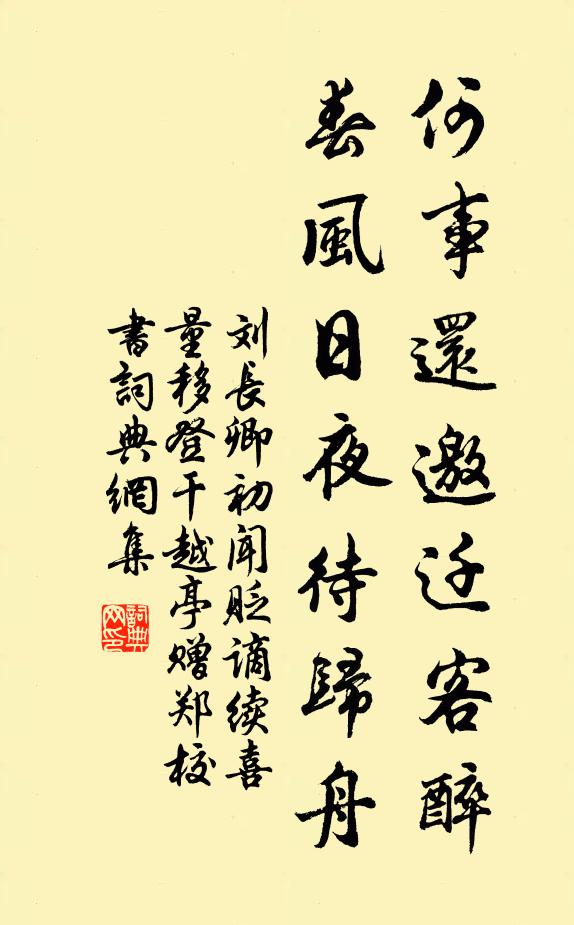 何事還邀迁客醉
春風日夜待歸舟
刘長卿初闻贬谪续喜
量移登干越亭赠郑校
書詞典網集
詞典网印